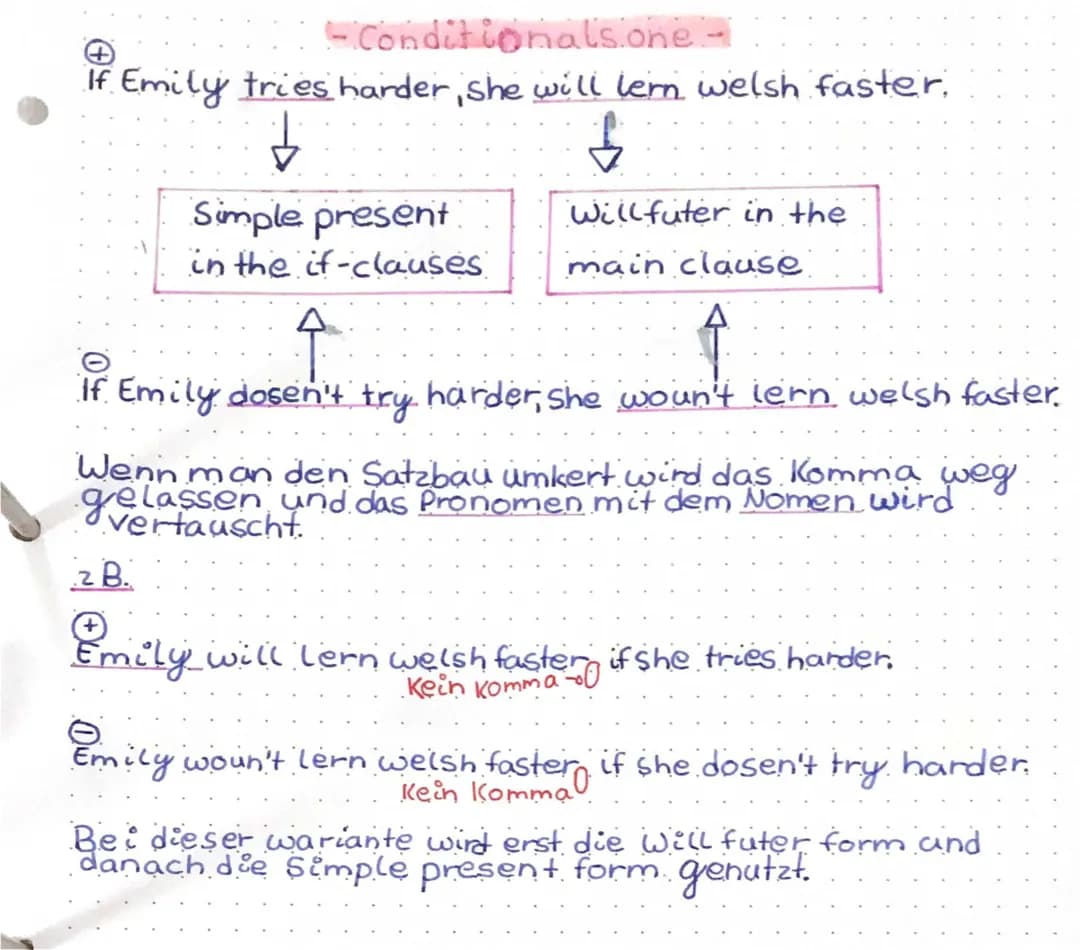 - Conditionals one -
+
If Emily tries harder, she will lern welsh faster.
Simple present
in the if-clauses
Will futer in the
main clause
-
If Emily dosen't try harder, she woun't lern welsh faster.
Wenn man den Satzbau umkert wird das Komma weg
gelassen und das Pronomen mit dem Nomen wird
vertauscht.
z B.
+
Emily will lern welsh faster if she tries harder.
Kein komma
-
Emily woun't lern welsh faster if she dosen't try harder.
Kein Komma
Bei dieser wariante wird erst die Will futer form und
danach die Simple present form genutzt.